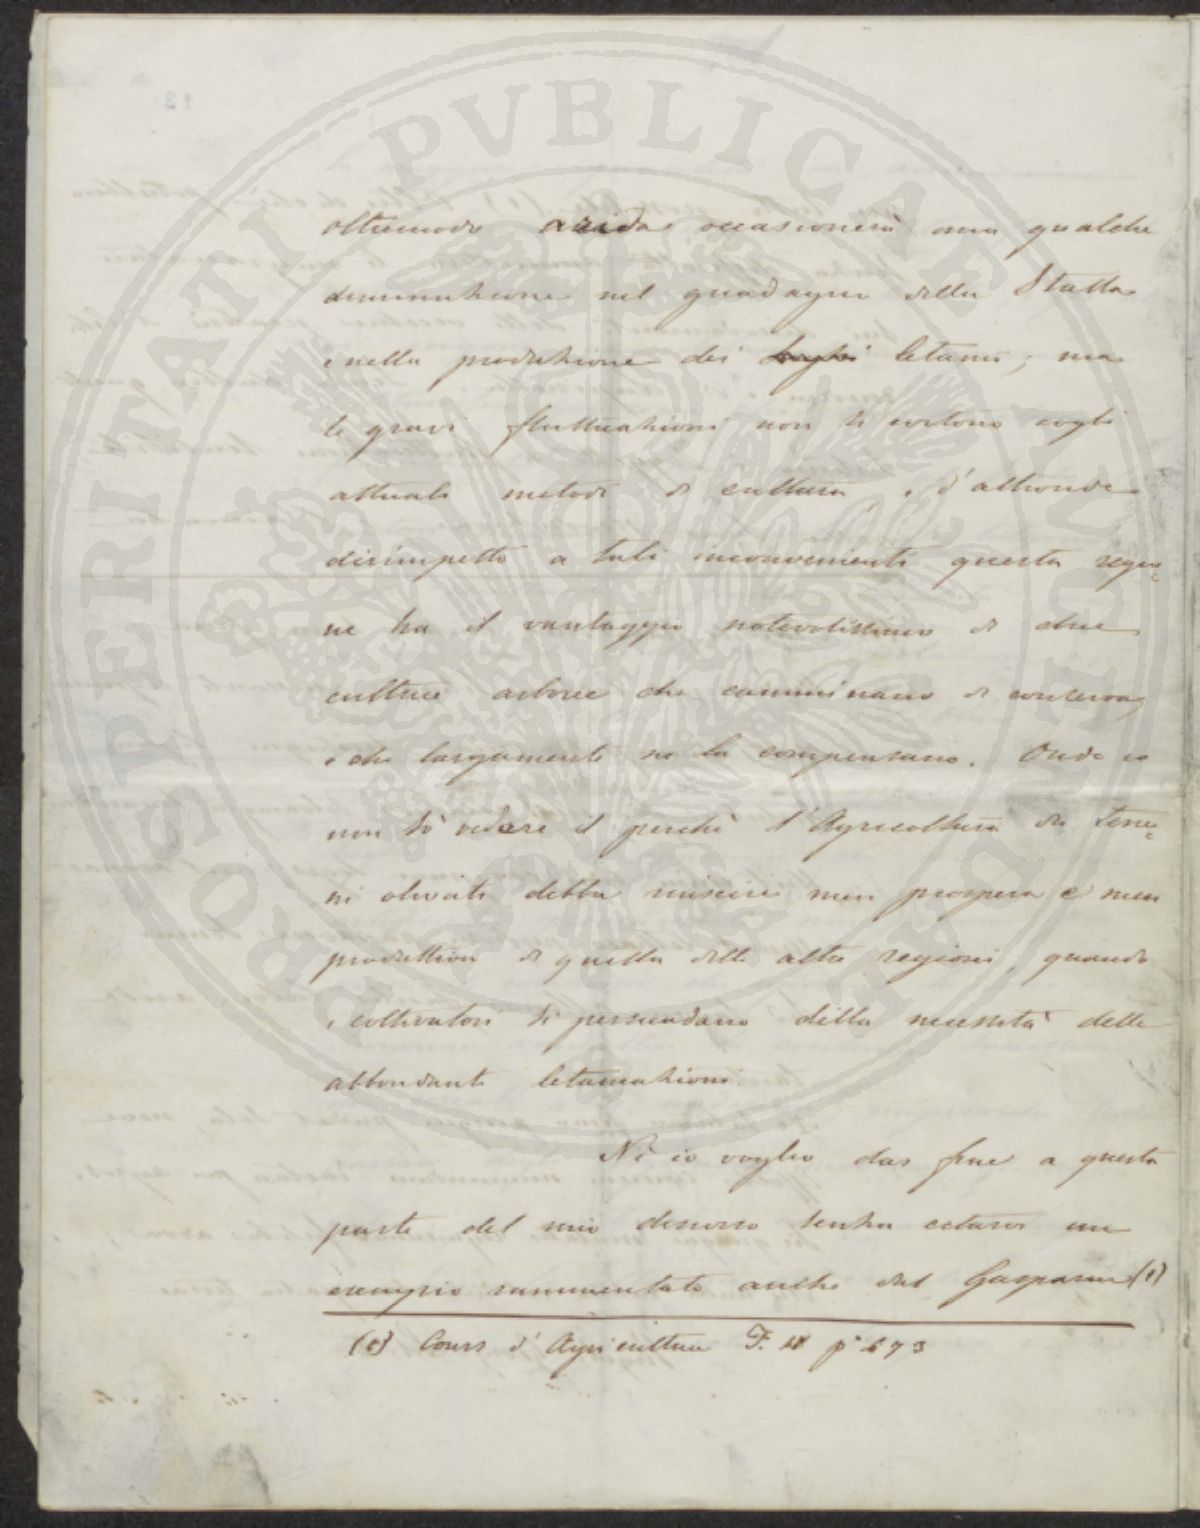 PROSPERITATI PVBLICAE AVGENDAE
oltremodo arida occasionerà una qualche
diminuzione nel guadagno della Stalla
e nella produzione dei letami; ma
le gravi fluttuazioni non si evitano cogli
attuali metodi di cultura, e d'altronde
dirimpetto a tali inconvenienti questa regio=
ne ha il vantaggio notevolissimo di due
culture arboree che camminano di conserva,
e che largamente ne la compensano. Onde io
non so vedere il perchè l'Agricoltura dei Terre=
ni olivati debba riuscire men prospera e men
produttiva di quella delle altre regioni, quando
i coltivatori si persuadano della necessità delle
abbondanti letamazioni.
Nè io voglio dar fine a questa
parte del mio discorso senza citarvi un
esempio rammentato anche dal Gasparin (1)
(1) Cours d'Agriculture T. p. 673